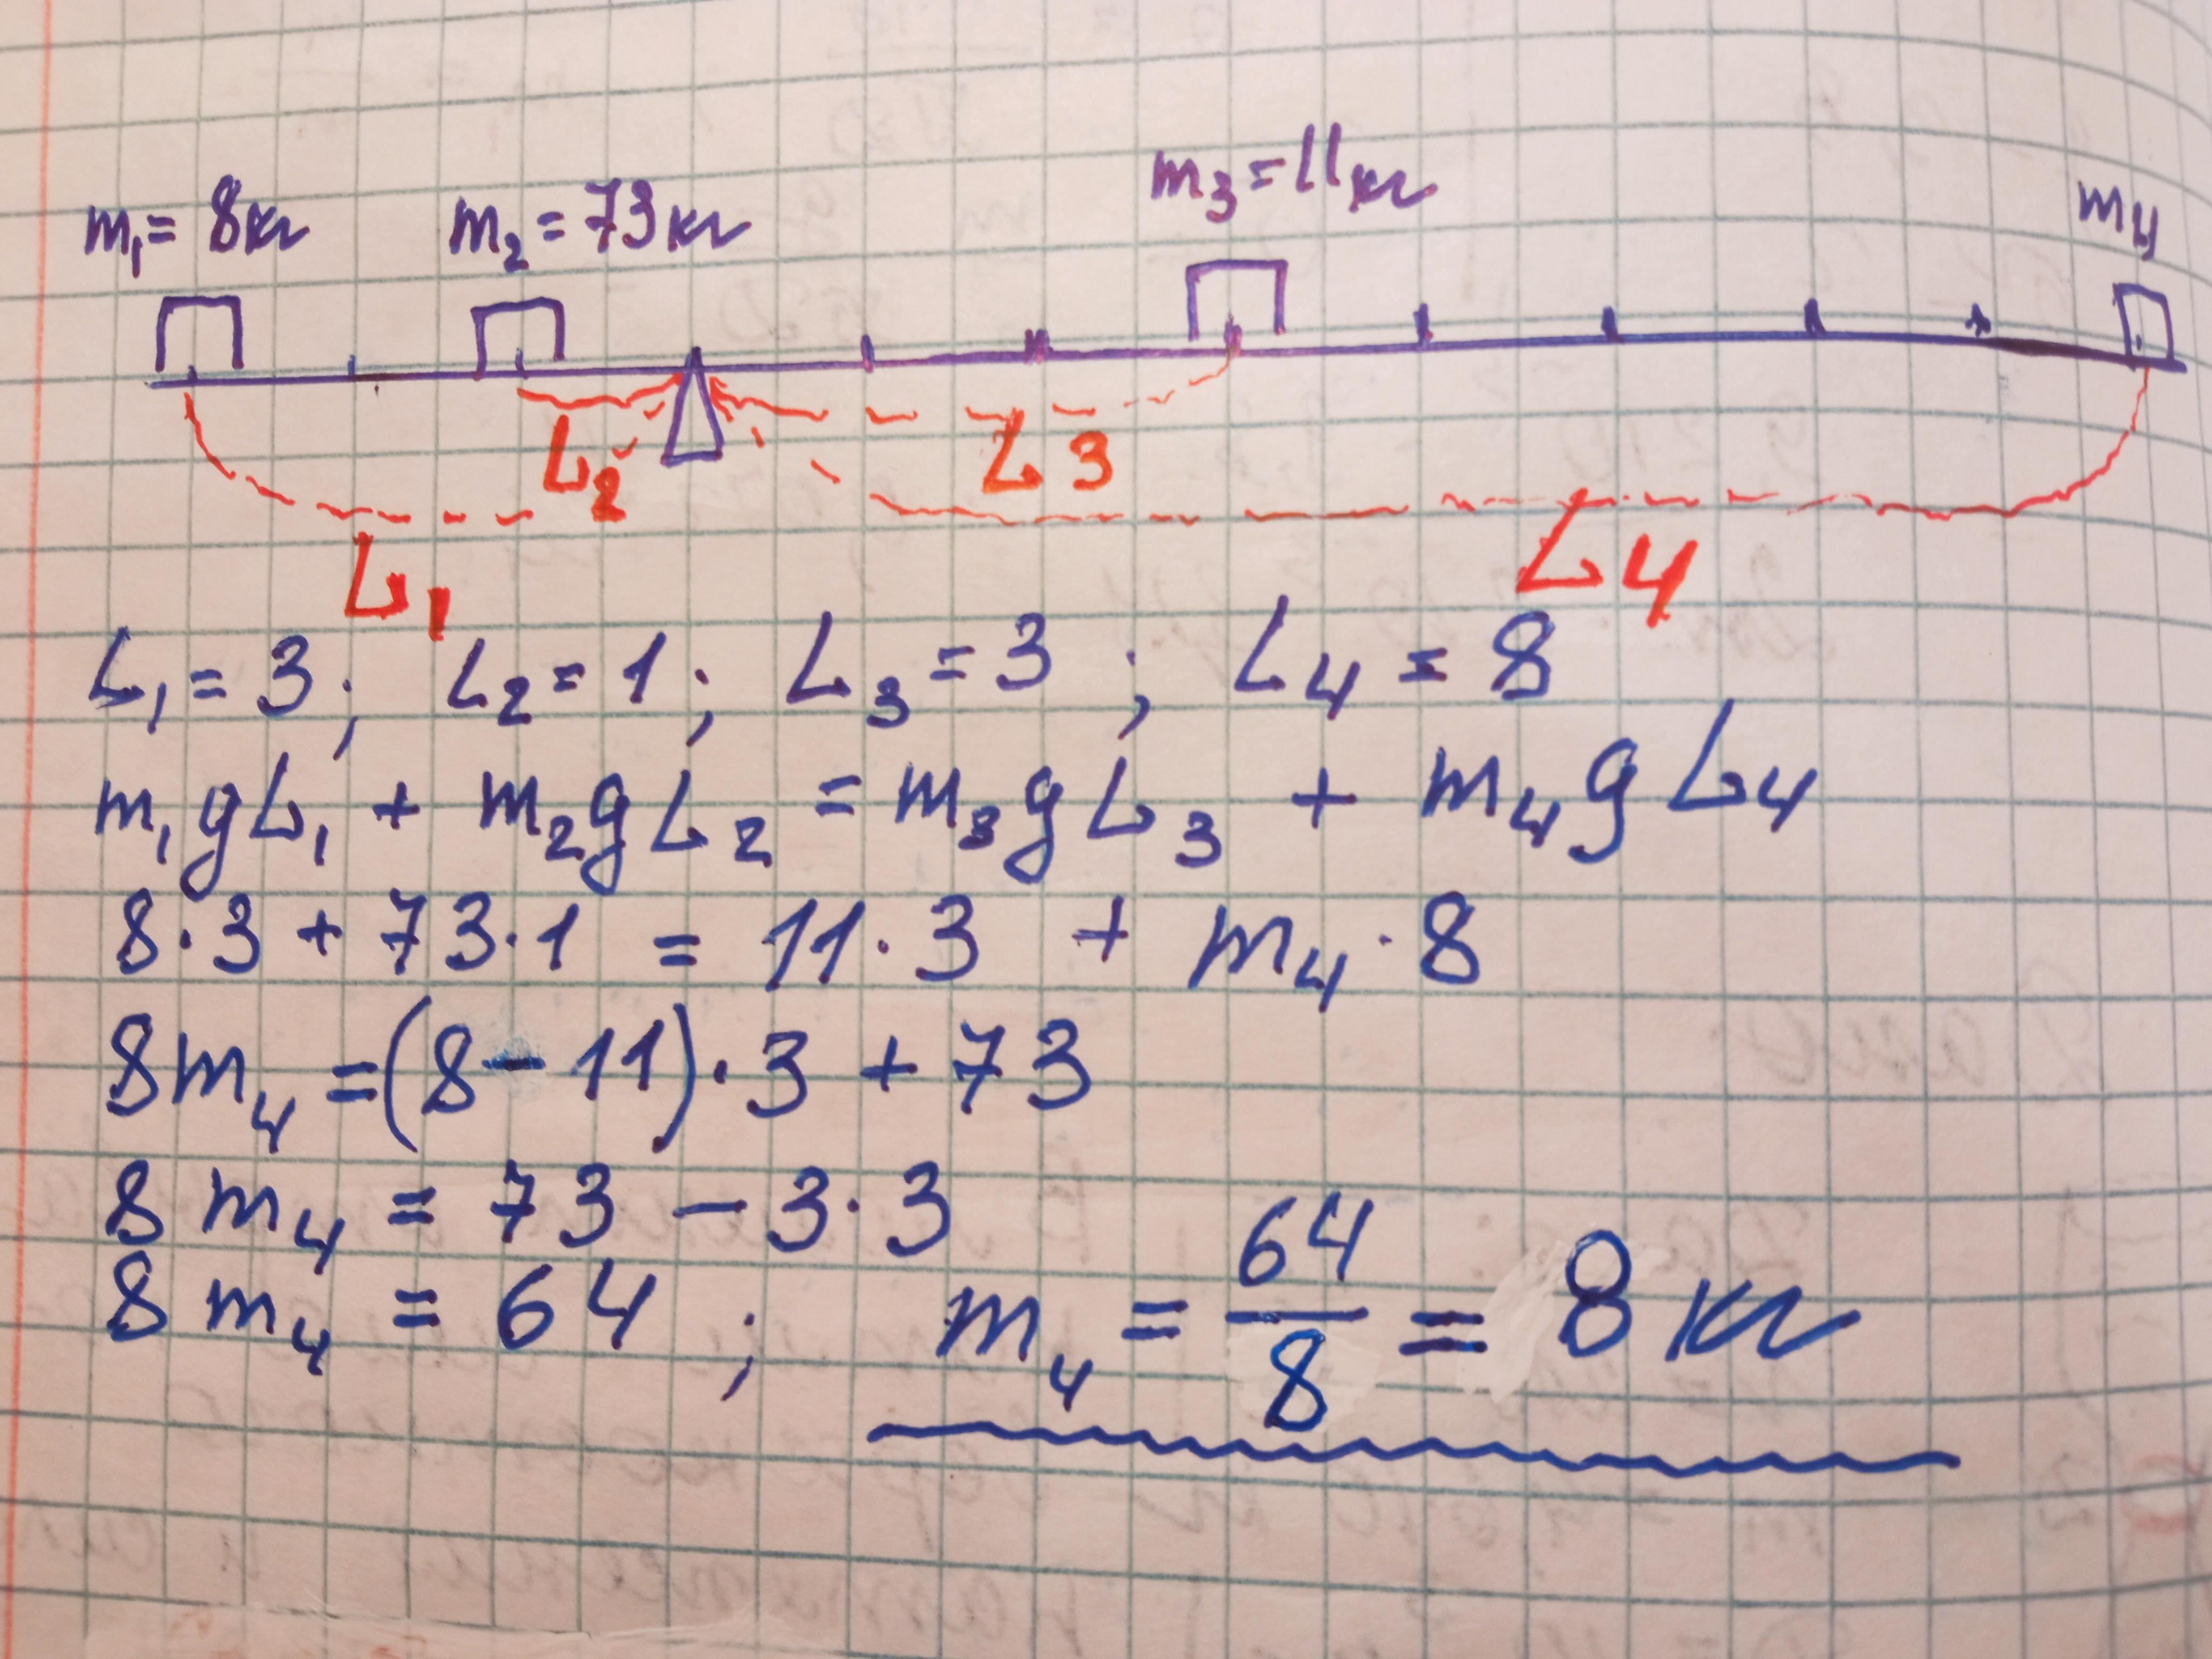 m₁ = 8 кг m₂ = 73 кг m₃ = 11 кг m₄
L₂ L₃
L₁ L₄
L₁ = 3; L₂ = 1; L₃ = 3; L₄ = 8
m₁gL₁ + m₂gL₂ = m₃gL₃ + m₄gL₄
8·3 + 73·1 = 11·3 + m₄·8
8m₄ = (8 - 11)·3 + 73
8m₄ = 73 - 3·3
8m₄ = 64; m₄ = 64/8 = 8 кг